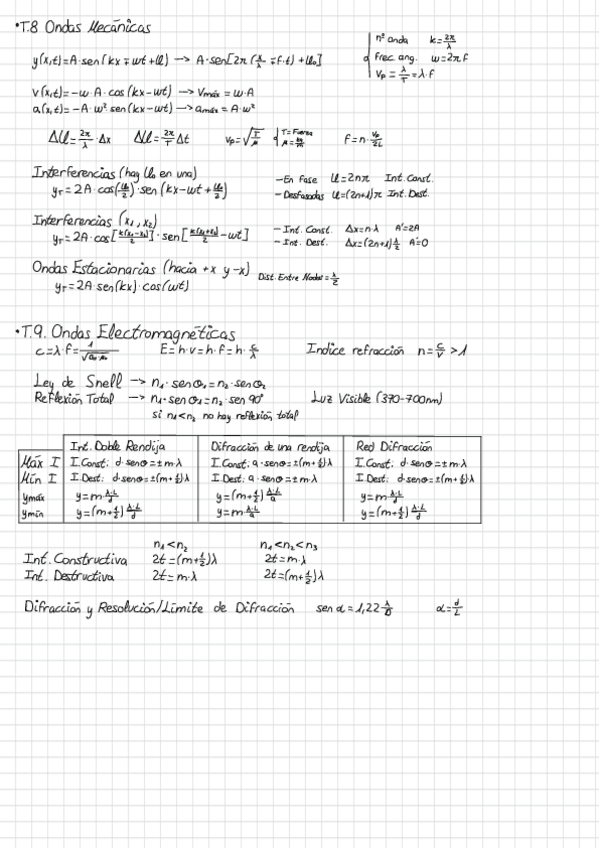 •T.8 Ondas Mecánicas
n² onda k=2π/λ
Frec ang. w=2πf
Vp=λ/T=λ·f
y(x,t)=A·sen(kx∓wt+φ) → A·sen[2π(x/λ∓f·t)+φ₀]
v(x,t)=-w·A·cos(kx-wt) → Vmáx=w·A
a(x,t)=-A·w²·sen(kx-wt) → amáx=A·w²
Δφ=2π/λ·Δx Δφ=2π/T Δt vp=√(T/μ) T=Fuerza μ=kg/m f=n·vp/2L
Interferencias (hay φ₀ en una)
yT=2A·cos(φ₀/2)·sen(kx-wt+φ₀/2)
-En Fase φ=2nπ Int.Const.
-Desfasadas φ=(2n+1)π Int.Dest.
Interferencias (x₁,x₂)
yT=2A·cos[k(x₁-x₂)/2]·sen[k(x₁+x₂)/2-wt]
-Int. Const. Δx=n·λ A'=2A
-Int. Dest. Δx=(2n+1)λ/2 A'=0
Ondas Estacionarias (hacia +x y -x) Dist. Entre Nodos=λ/2
yT=2A·sen(kx)·cos(wt)
•T.9. Ondas Electromagnéticas
c=λ·f=1/√(ε₀·μ₀) E=h·v=h·f=h·c/λ Indice refracción n=c/v>1
Ley de Snell → n₁·senθ₁=n₂·senθ₂
Reflexión Total → n₁·senθ₁=n₂·sen90° Luz Visible (370-700nm)
si n₁<n₂ no hay reflexión total
Int. Doble Rendija Difracción de una rendija Red Difracción
Máx I I.Const: d·senθ=±m·λ I.Const: a·senθ=±(m+1/2)λ I.Const: d·senθ=±m·λ
Mín I I.Dest: d·senθ=±(m+1/2)λ I.Dest: a·senθ=±m·λ I.Dest: d·senθ=±(m+1/2)λ
ymáx y=m·λ·L/d y=(m+1/2)λ·L/a y=m·λ·L/d
ymín y=(m+1/2)λ·L/d y=m·λ·L/a y=(m+1/2)λ·L/d
n₁<n₂ n₁<n₂<n₃
Int. Constructiva 2t=(m+1/2)λ 2t=m·λ
Int. Destructiva 2t=m·λ 2t=(m+1/2)λ
Difracción y Resolución/Límite de Difracción sen α=1,22·λ/D α=d/L